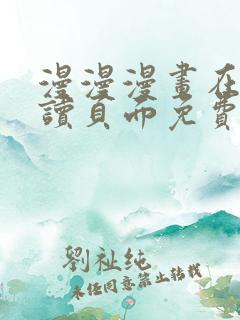 漫漫漫畫在
讀頁面免費
劉祉纯
未经同意禁止转载